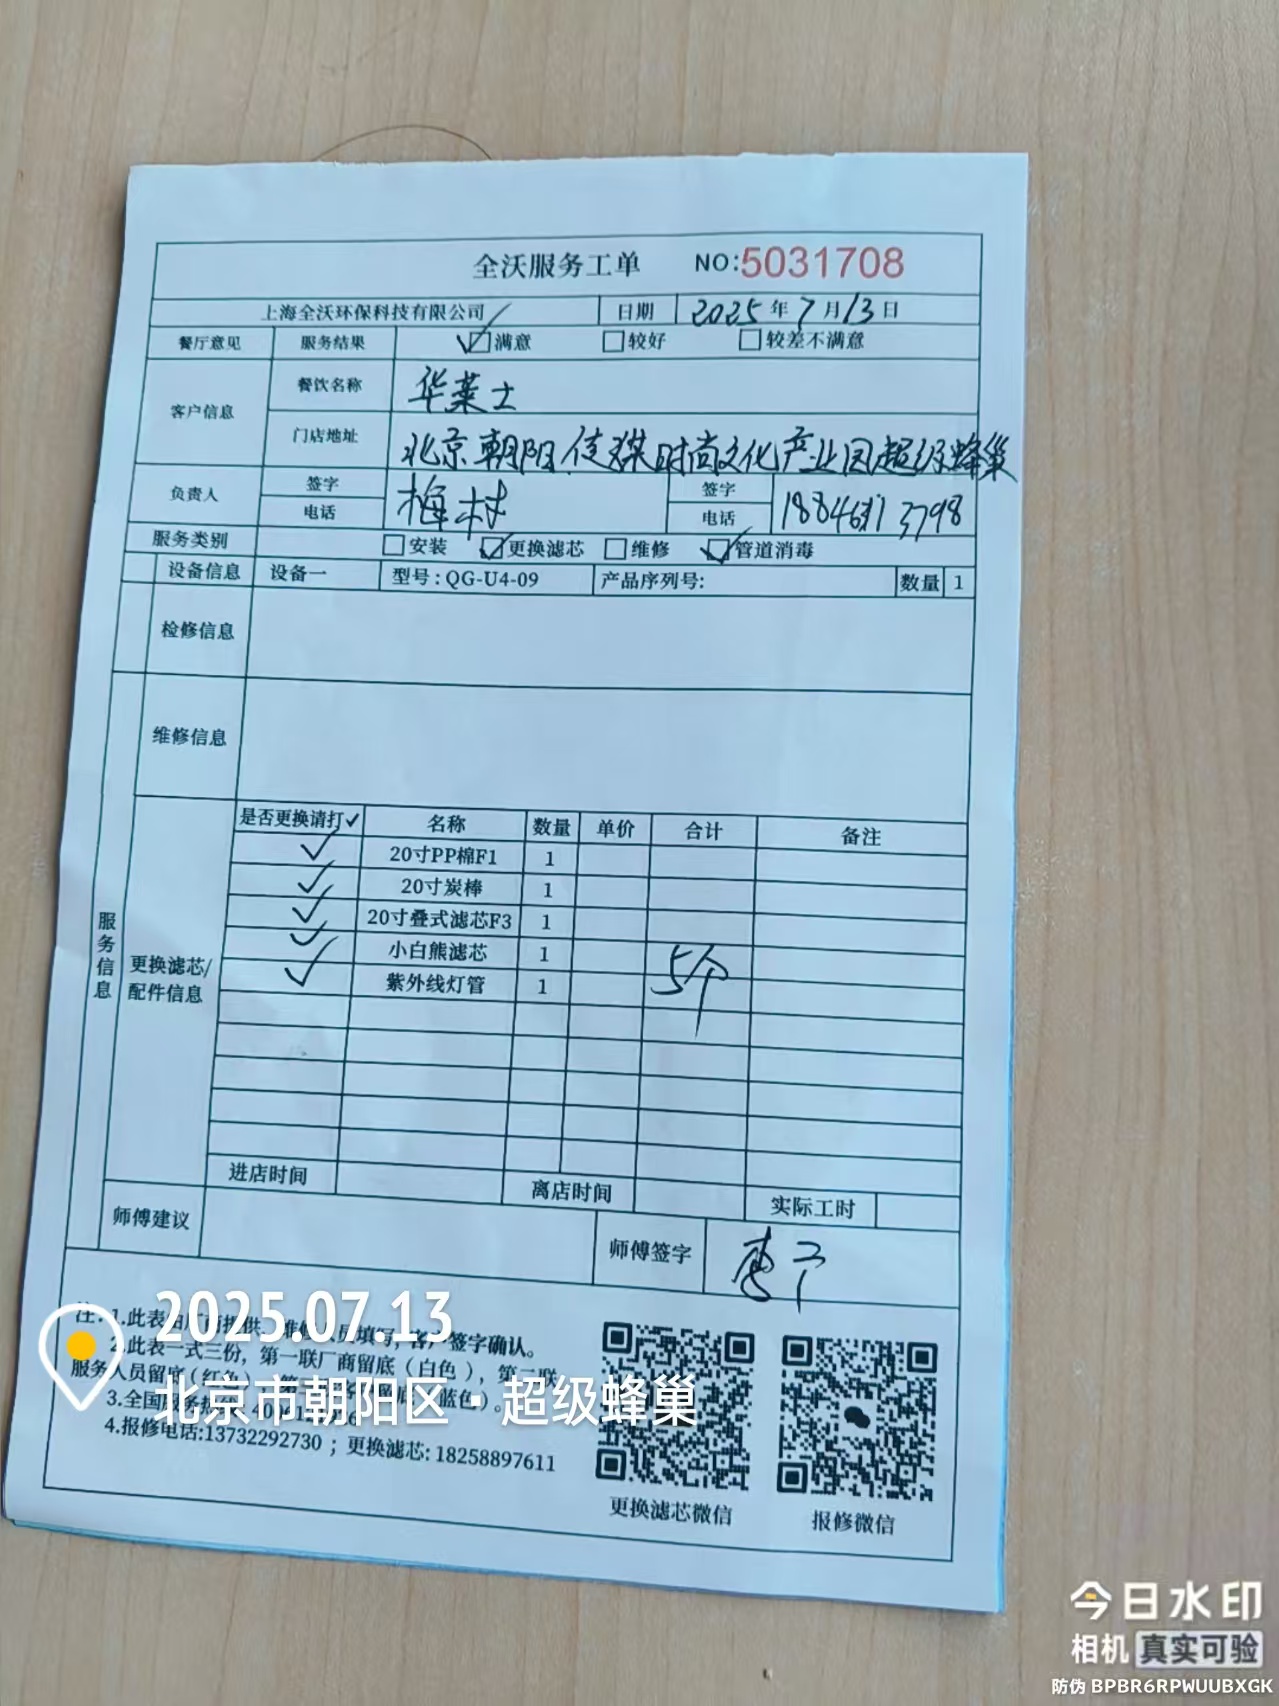 全沃服务工单 NO:5031708
上海全沃环保科技有限公司 日期 2025年7月13日
餐厅意见 服务结果 ☑满意 ☐较好 ☐较差不满意
客户信息 餐饮名称 华莱士
门店地址 北京朝阳传媒时尚文化产业园超级蜂巢
负责人 签字 梅村 签字
电话 电话
服务类别 ☐安装 ☑更换滤芯 ☐维修 ☑管道消毒
设备信息 设备一 型号:QG-U4-09 产品序列号: 数量 1
检修信息
维修信息
服务信息
更换滤芯/配件信息
是否更换请打✓ 名称 数量 单价 合计 备注
✓ 20寸PP棉F1 1
✓ 20寸炭棒 1
✓ 20寸叠式滤芯F3 1
✓ 小白熊滤芯 1
✓ 紫外线灯管 1 5个
进店时间 离店时间 实际工时
师傅建议 师傅签字
注:1.此表由厂商提供 填写,客户签字确认。
2.此表一式三份,第一联厂商留底(白色),第二联
服务人员留底(红 蓝色)。
3.全国服务
4.报修电话:13732292730 ; 更换滤芯: 18258897611
更换滤芯微信 报修微信
2025.07.13
北京市朝阳区·超级蜂巢
今日水印
相机 真实可验
防伪 BPBR6RPWUUBXGK